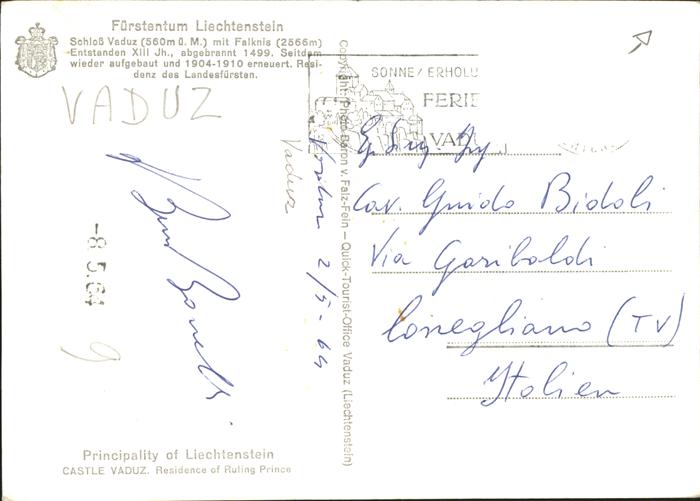 Fürstentum Liechtenstein
Schloß Vaduz (560m ü. M.) mit Falknis (2566m)
Entstanden XIII Jh., abgebrannt 1499. Seitdem
wieder aufgebaut und 1904-1910 erneuert. Resi-
denz des Landesfürsten.
VADUZ
2/5-64
-8.5.64
9
Principality of Liechtenstein
CASTLE VADUZ. Residence of Ruling Prince
Vaduz
Copyright: Photo Baron v. Falz-Fein – Quick-Tourist-Office Vaduz (Liechtenstein)
SONNE/ERHOLU
FERIE
VADU
Cav. Guido Bidoli
Via Garibaldi
Conegliano (TV)
Italien